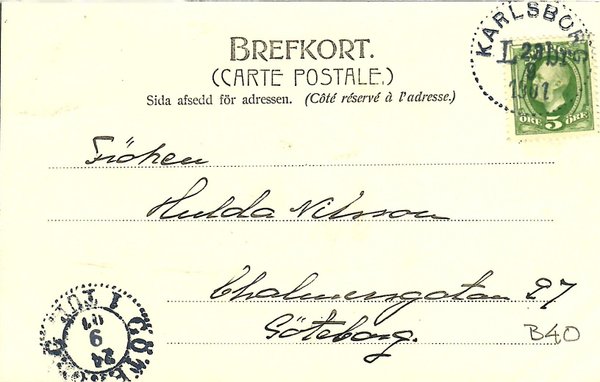 BREFKORT.
(CARTE POSTALE.)
Sida afsedd för adressen. (Côté réservé à l'adresse.)
KARLSBORG
1901
5
ÖRE ÖRE
Fröken
Hulda Nilsson
Chalmersgatan 27
Göteborg.
B40
1 TUR
24
9
01